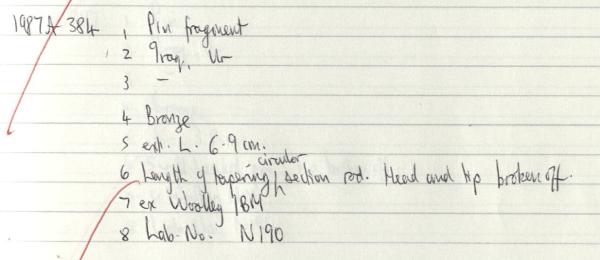 1987A 384 1 Pin fragment
2 Iraq, Ur
3 –
4 Bronze
5 ext. L. 6.9 cm.
6 Length of tapering circular section rod. Head and tip broken off.
7 ex Woolley / BM
8 Lab. No. N190